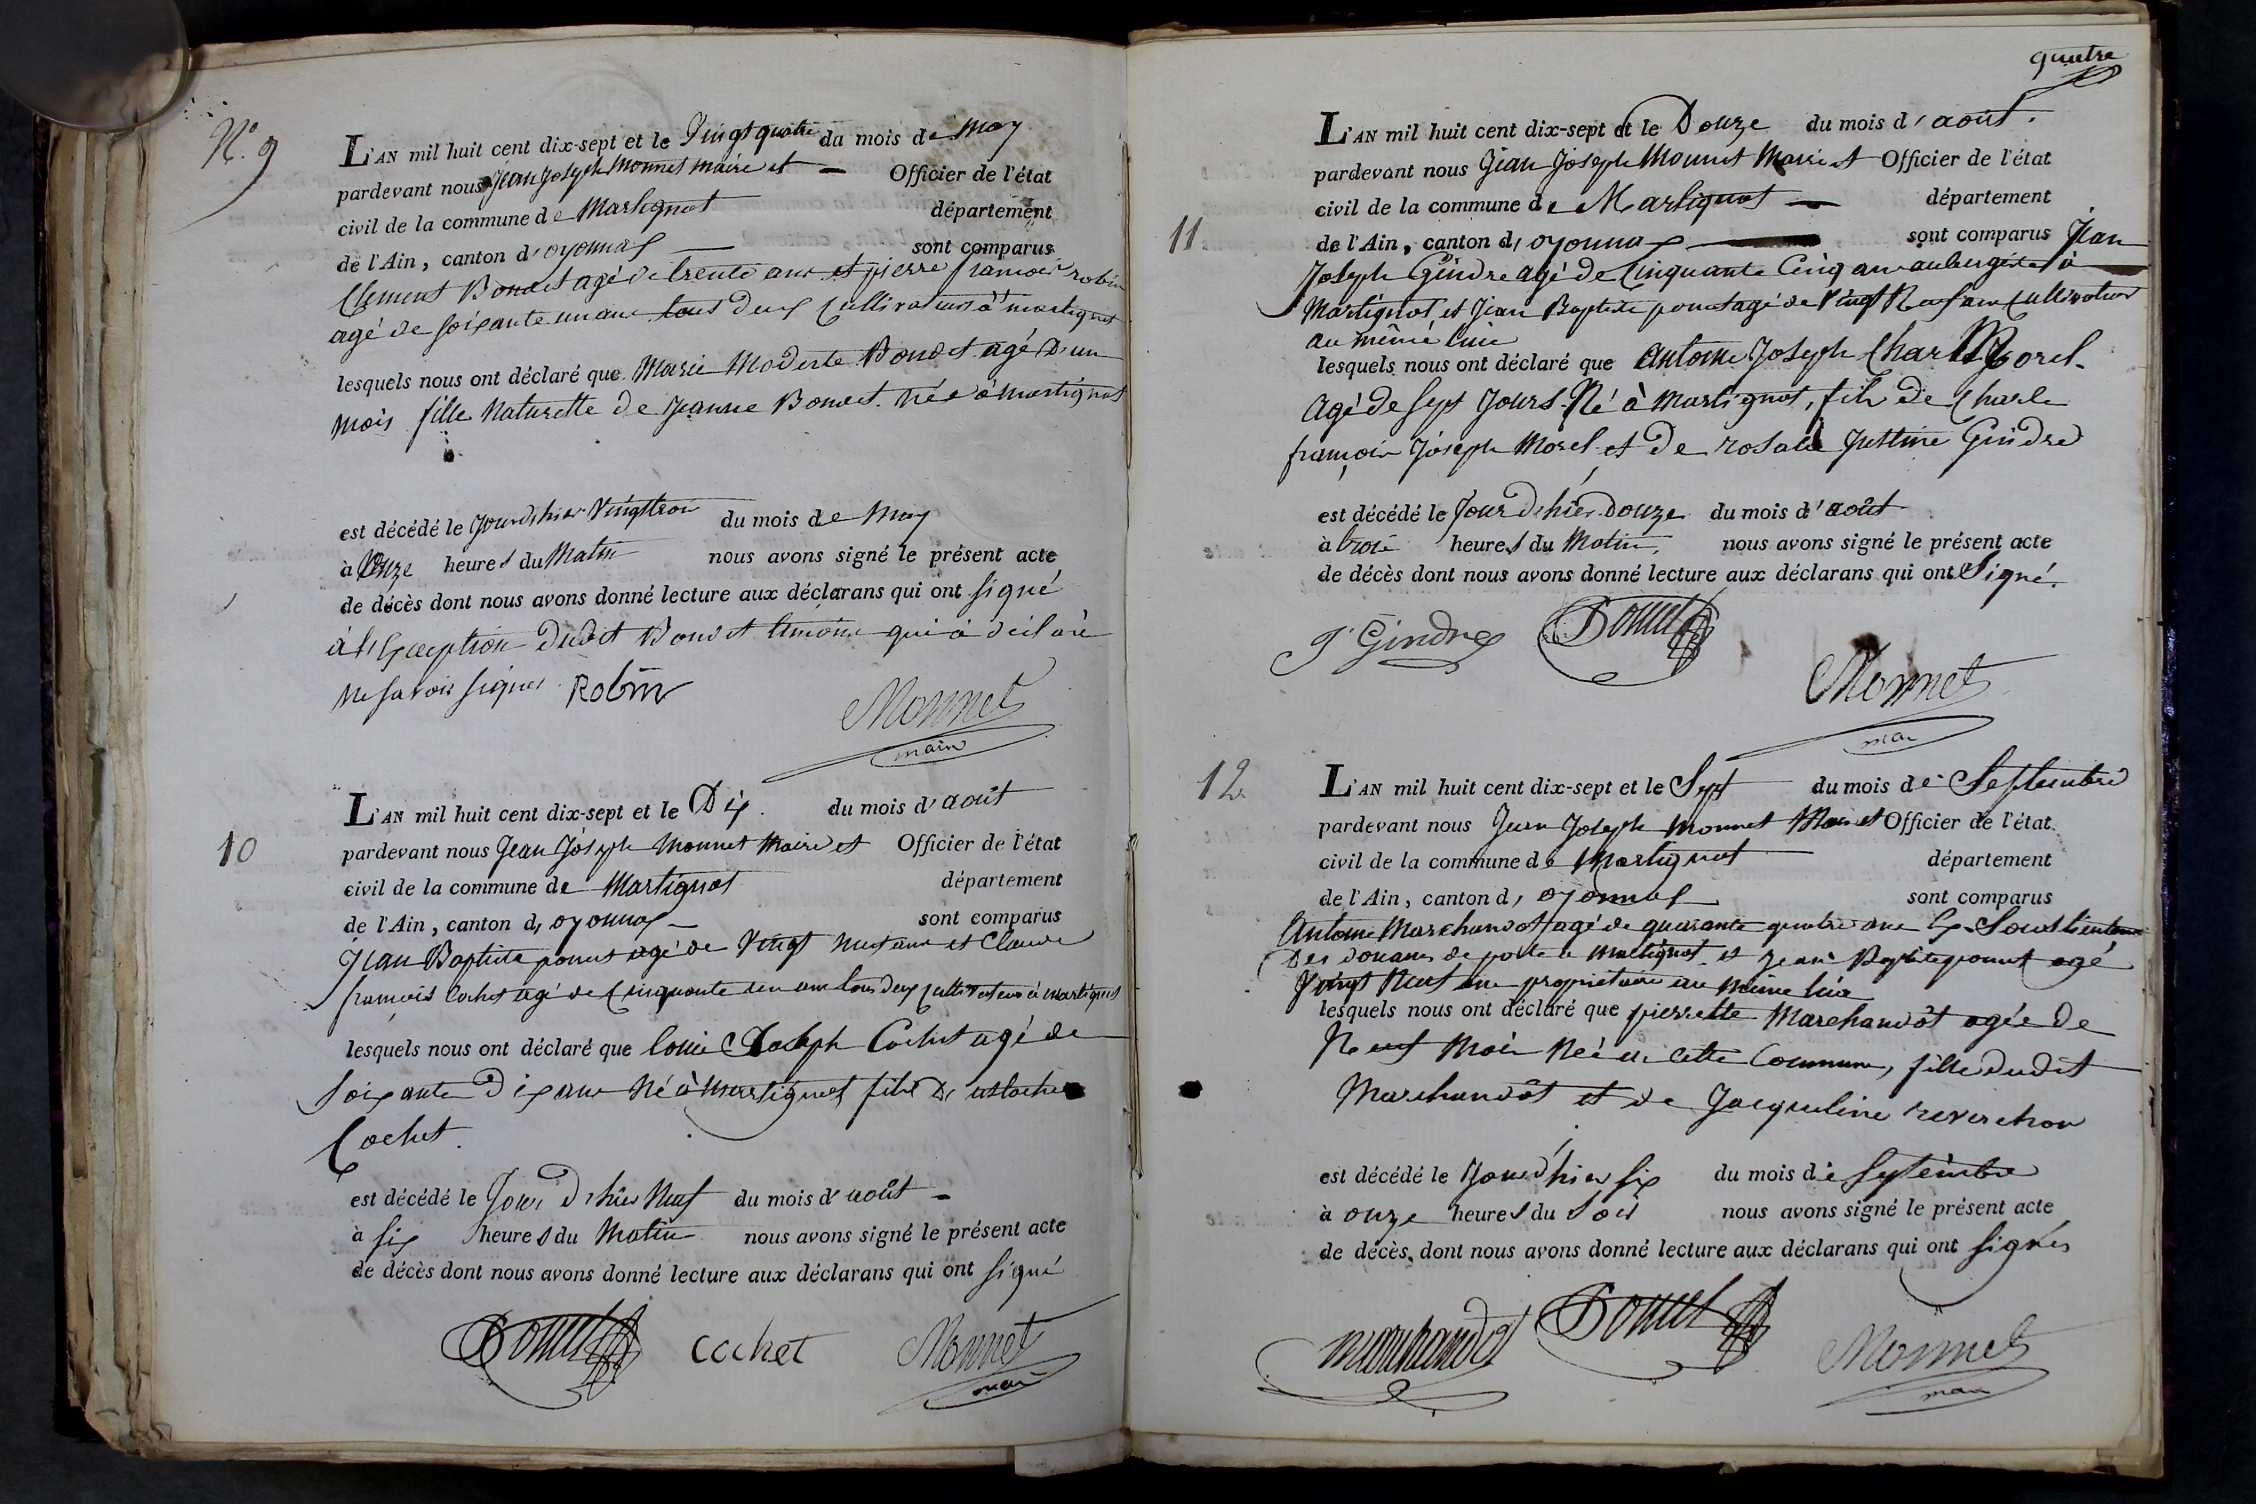 N.° 9
L'AN mil huit cent dix-sept et le Vingt quatre du mois de May
pardevant nous Jean Joseph Monnet maire et — Officier de l'état
civil de la commune de Martignat département
de l'Ain, canton d'oyonnax sont comparus
Clement Bondet agé de trente ans et pierre francois robin
agé de soixante un ans tous deux Cultivateurs à martignat
lesquels nous ont déclaré que Marie Modeste Bondet agé D'un
mois fille Naturelle de Jeanne Bondet née à martignat
est décédé le Jourdhier Vingttrois du mois de May
à Onze heures du Matin nous avons signé le présent acte
de décès dont nous avons donné lecture aux déclarans qui ont signé
à l'Exception dudit Bondet temoin qui à déclaré
ne savoir signer Robin
Monnet
maire
10
L'AN mil huit cent dix-sept et le Dix du mois d'août
pardevant nous Jean Joseph Monnet Maire et Officier de l'état
civil de la commune de Martignat département
de l'Ain, canton d'oyonnax — sont comparus
Jean Baptiste agé de Vingt neuf ans et Claude
françois Cochet agé de Cinquante un ans tous deux Cultivateurs à martignat
lesquels nous ont déclaré que Louis Joseph Cochet agé de
Soixante Dix ans Né à Martignat fils D'
Cochet
est décédé le Jour D'hier Neuf du mois d'août —
à six heures du Matin nous avons signé le présent acte
de décès dont nous avons donné lecture aux déclarans qui ont signé
cochet Monnet
maire
quatre
11
L'AN mil huit cent dix-sept et le Douze du mois d'août.
pardevant nous Jean Joseph Monnet Maire et Officier de l'état
civil de la commune de Martignat — département
de l'Ain, canton d'oyonnax — sont comparus Jean
Joseph Gindre agé de Cinquante Cinq ans aubergiste à
Martignat, et Jean Baptiste agé de Vingt Neuf ans Cultivateur
au même lieu
lesquels nous ont déclaré que antoine Joseph Charle Morel
Agé de sept Jours Né à Martignat, fils de Charle
françois Joseph Morel et De rosalie Justine Gindre
est décédé le Jour D'hier Douze du mois d'août
à trois heures du Matin, nous avons signé le présent acte
de décès dont nous avons donné lecture aux déclarans qui ont Signé.
J Gindre
Monnet
maire
12
L'AN mil huit cent dix-sept et le Sept du mois de Septembre
pardevant nous Jean Joseph Monnet Maire et Officier de l'état
civil de la commune de Martignat département
de l'Ain, canton d'oyonnax sont comparus
Antoine Marchandot agé de quarante quatre ans Ex Souslieutenant
Des Douanes de poste à Martignat et Jean Baptiste agé
Vingt Neuf ans propriétaire au même lieu
lesquels nous ont déclaré que pierrette Marchandôt agée de
Neuf Mois Née en cette Commune, fille dudit
Marchandôt et de Jacqueline reverchon
est décédé le Jourd'hier six du mois de Septembre
à onze heures du Soir nous avons signé le présent acte
de décès, dont nous avons donné lecture aux déclarans qui ont signés
marchandot Monnet
maire